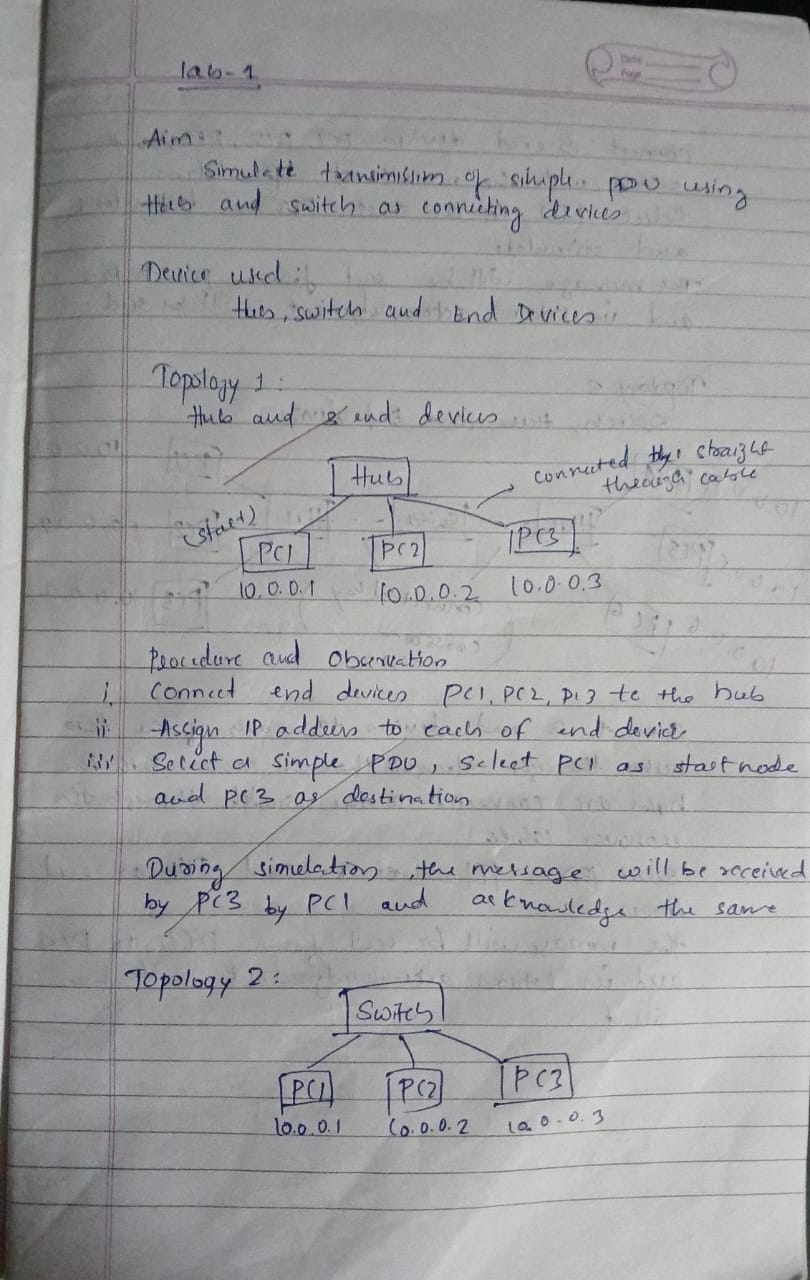 lab-1
Date
Page
Aim:
Simulate transimission of simple PDU using
Hub and switch as connecting devices
Device used:
Hub, switch and End Devices
Topology 1:
Hub and end devices
Hub
connected by straight
through cable
(start)
PC1 PC2 PC3
10.0.0.1 10.0.0.2 10.0.0.3
Procedure and Observation
i. Connect end devices PC1, PC2, PC3 to the hub
ii. Assign IP address to each of end device
iii. Select a simple PDU, select PC1 as start node
and PC3 as destination
During simulation, the message will be received
by PC3 by PC1 and acknowledge the same
Topology 2:
Switch
PC1 PC2 PC3
10.0.0.1 10.0.0.2 10.0.0.3